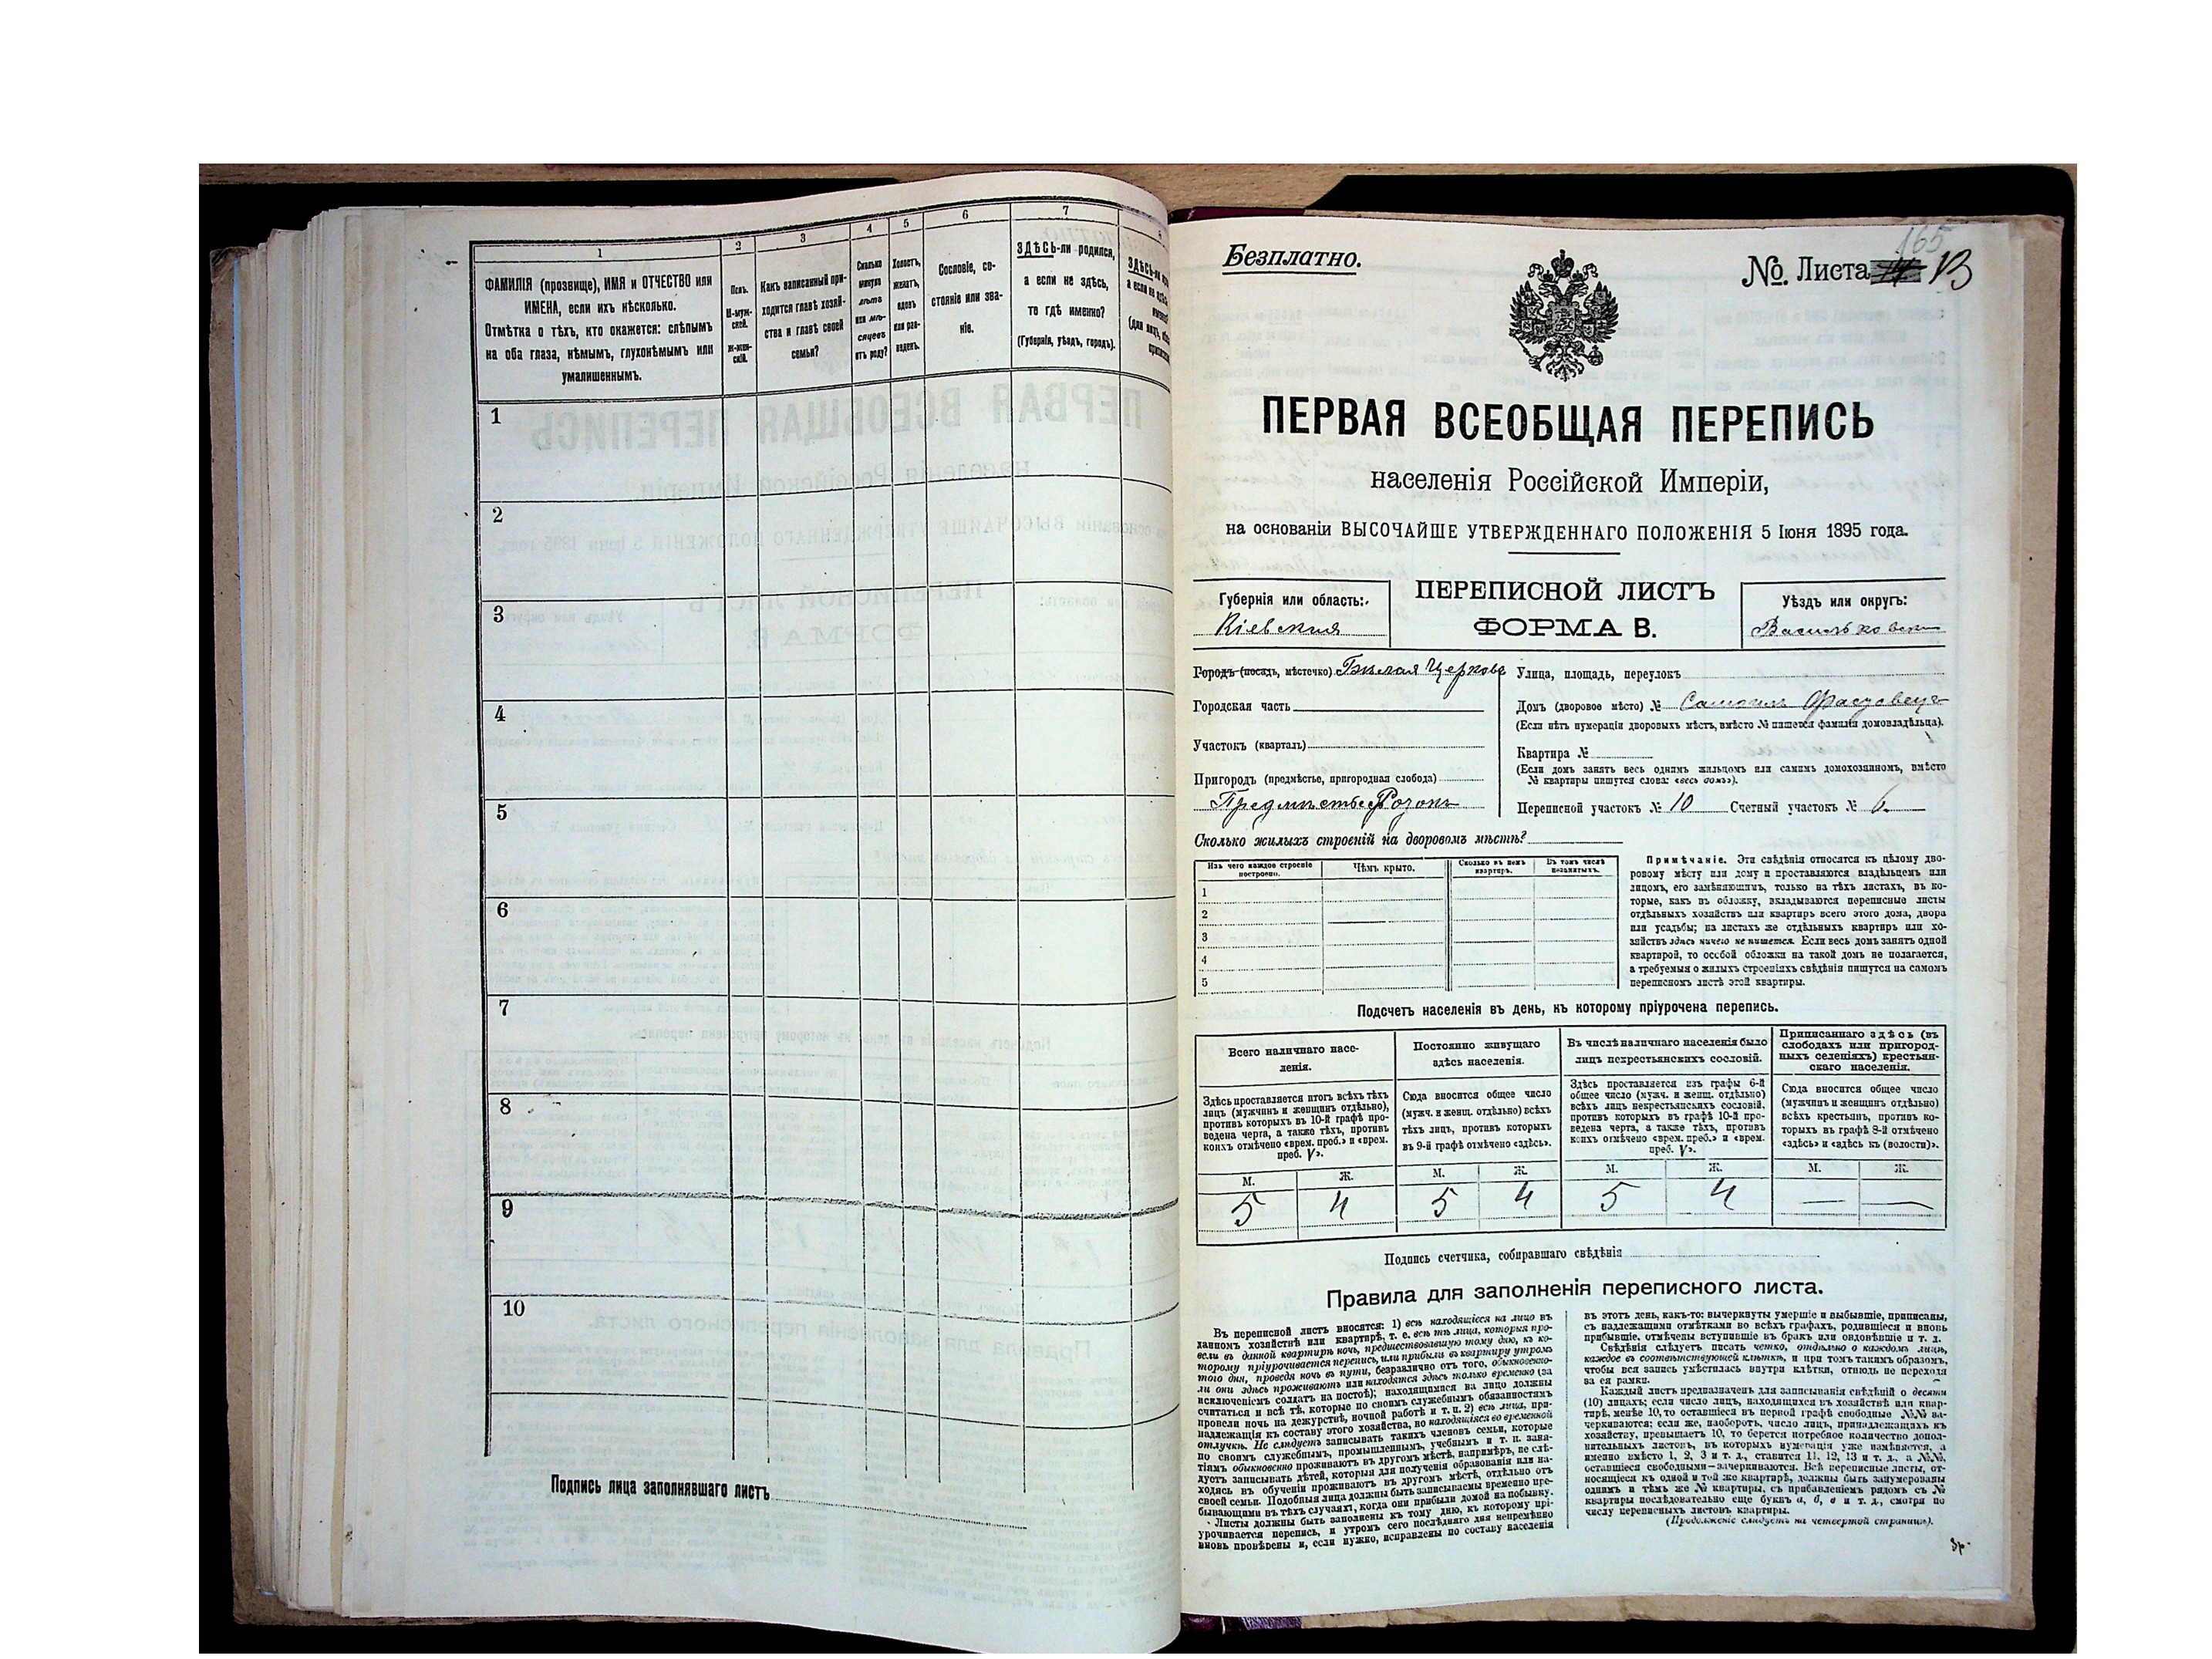 1
ФАМИЛІЯ (прозвище), ИМЯ и ОТЧЕСТВО или
ИМЕНА, если ихъ нѣсколько.
Отмѣтка о тѣхъ, кто окажется: слѣпымъ
на оба глаза, нѣмымъ, глухонѣмымъ или
умалишеннымъ.
2
Полъ.
М-муж-
ской.
Ж-жен-
скій.
3
Какъ записанный при-
ходится главѣ хозяй-
ства и главѣ своей
семьи?
4
Сколько
минуло
лѣтъ
или мѣ-
сяцевъ
отъ роду?
5
Холостъ,
женатъ,
вдовъ
или раз-
веденъ.
6
Сословіе, со-
стояніе или зва-
ніе.
7
ЗДѢСЬ-ли родился,
а если не здѣсь,
то гдѣ именно?
(Губернія, уѣздъ, городъ).
1
2
3
4
5
6
7
8
9
10
Подпись лица заполнявшаго листъ
Безплатно.
165
№. Листа 13
ПЕРВАЯ ВСЕОБЩАЯ ПЕРЕПИСЬ
населенія Россійской Имперіи,
на основаніи ВЫСОЧАЙШЕ УТВЕРЖДЕННАГО ПОЛОЖЕНІЯ 5 Іюня 1895 года.
Губернія или область:
Кіевская
ПЕРЕПИСНОЙ ЛИСТЪ
ФОРМА В.
Уѣздъ или округъ:
Городъ (посадъ, мѣстечко) Бѣлая Церковь
Городская часть
Участокъ (кварталъ)
Пригородъ (предмѣстье, пригородная слобода)
Улица, площадь, переулокъ
Домъ (дворовое мѣсто) №
(Если нѣтъ нумераціи дворовыхъ мѣстъ, вмѣсто № пишется фамилія домовладѣльца).
Квартира №
(Если домъ занятъ весь однимъ жильцомъ или самимъ домохозяиномъ, вмѣсто
№ квартиры пишутся слова: «весь домъ»).
Переписной участокъ № 10 Счетный участокъ № 6
Сколько жилыхъ строеній на дворовомъ мѣстѣ?
Изъ чего каждое строеніе
построено.
Чѣмъ крыто.
Сколько въ немъ
квартиръ.
Въ томъ числѣ
незанятыхъ.
1
2
3
4
5
Примѣчаніе. Эти свѣдѣнія относятся къ цѣлому дво-
ровому мѣсту или дому и проставляются владѣльцемъ или
лицомъ, его замѣняющимъ, только на тѣхъ листахъ, въ ко-
торые, какъ въ обложку, вкладываются переписные листы
отдѣльныхъ хозяйствъ или квартиръ всего этого дома, двора
или усадьбы; на листахъ же отдѣльныхъ квартиръ или хо-
зяйствъ здѣсь ничего не пишется. Если весь домъ занятъ одной
квартирой, то особой обложки на такой домъ не полагается,
а требуемыя о жилыхъ строеніяхъ свѣдѣнія пишутся на самомъ
переписномъ листѣ этой квартиры.
Подсчетъ населенія въ день, къ которому пріурочена перепись.
Всего наличнаго насе-
ленія.
Здѣсь проставляется итогъ всѣхъ тѣхъ
лицъ (мужчинъ и женщинъ отдѣльно),
противъ которыхъ въ 10-й графѣ про-
ведена черта, а также тѣхъ, противъ
коихъ отмѣчено «врем. преб.» и «врем.
преб. V».
М. Ж.
5 4
Постоянно живущаго
здѣсь населенія.
Сюда вносится общее число
(мужч. и женщ. отдѣльно) всѣхъ
тѣхъ лицъ, противъ которыхъ
въ 9-й графѣ отмѣчено «здѣсь».
М. Ж.
5 4
Въ числѣ наличнаго населенія было
лицъ некрестьянскихъ сословій.
Здѣсь проставляется изъ графы 6-й
общее число (мужч. и женщ. отдѣльно)
всѣхъ лицъ некрестьянскихъ сословій,
противъ которыхъ въ графѣ 10-й про-
ведена черта, а также тѣхъ, противъ
коихъ отмѣчено «врем. преб.» и «врем.
преб. V».
М. Ж.
5 4
Приписаннаго здѣсь (въ
слободахъ или пригород-
ныхъ селеніяхъ) крестьян-
скаго населенія.
Сюда вносится общее число
(мужчинъ и женщинъ отдѣльно)
всѣхъ крестьянъ, противъ ко-
торыхъ въ графѣ 8-й отмѣчено
«здѣсь» и «здѣсь къ (волости)».
М. Ж.
— —
Подпись счетчика, собиравшаго свѣдѣнія
Правила для заполненія переписного листа.
Въ переписной листъ вносятся: 1) всѣ находящіеся на лицо въ
данномъ хозяйствѣ или квартирѣ, т. е. всѣ тѣ лица, которыя про-
вели въ данной квартирѣ ночь, предшествовавшую тому дню, къ ко-
торому пріурочивается перепись, или прибыли въ квартиру утромъ
того дня, проведя ночь въ пути, безразлично отъ того, обыкновенно-
ли они здѣсь проживаютъ или находятся здѣсь только временно (за
исключеніемъ солдатъ на постоѣ); находящимися на лицо должны
считаться и всѣ тѣ, которые по своимъ служебнымъ обязанностямъ
провели ночь на дежурствѣ, ночной работѣ и т. п. 2) всѣ лица, при-
надлежащія къ составу этого хозяйства, но находящіяся во временной
отлучкѣ. Не слѣдуетъ записывать такихъ членовъ семьи, которые
по своимъ служебнымъ, промышленнымъ, учебнымъ и т. п. заня-
тіямъ обыкновенно проживаютъ въ другомъ мѣстѣ, напримѣръ, не слѣ-
дуетъ записывать дѣтей, которыя для полученія образованія или на-
ходясь въ обученіи проживаютъ въ другомъ мѣстѣ, отдѣльно отъ
своей семьи. Подобныя лица должны быть записываемы временно пре-
бывающими въ тѣхъ случаяхъ, когда они прибыли домой на побывку.
Листы должны быть заполнены къ тому дню, къ которому прі-
урочивается перепись, и утромъ сего послѣдняго дня непремѣнно
вновь провѣрены и, если нужно, исправлены по составу населенія
въ этотъ день, какъ-то: вычеркнуты умершіе и выбывшіе, приписаны,
съ надлежащими отмѣтками во всѣхъ графахъ, родившіеся и вновь
прибывшіе, отмѣчены вступившіе въ бракъ или овдовѣвшіе и т. д.
Свѣдѣнія слѣдуетъ писать четко, отдѣльно о каждомъ лицѣ,
каждое въ соотвѣтствующей клѣткѣ, и при томъ такимъ образомъ,
чтобы вся запись умѣстилась внутри клѣтки, отнюдь не переходя
за ея рамки.
Каждый листъ предназначенъ для записыванія свѣдѣній о десяти
(10) лицахъ; если число лицъ, находящихся въ хозяйствѣ или квар-
тирѣ, менѣе 10, то оставшіеся въ первой графѣ свободные №№ за-
черкиваются; если же, наоборотъ, число лицъ, принадлежащихъ къ
хозяйству, превышаетъ 10, то берется потребное количество допол-
нительныхъ листовъ, въ которыхъ нумерація уже измѣняется, а
именно вмѣсто 1, 2, 3 и т. д., ставится 11, 12, 13 и т. д., а №№,
оставшіеся свободными—зачеркиваются. Всѣ переписные листы, от-
носящіеся къ одной и той же квартирѣ, должны быть занумерованы
однимъ и тѣмъ же № квартиры, съ прибавленіемъ рядомъ съ №
квартиры послѣдовательно еще буквъ а, б, в и т. д., смотря по
числу переписныхъ листовъ квартиры.
(Продолженіе слѣдуетъ на четвертой страницѣ).